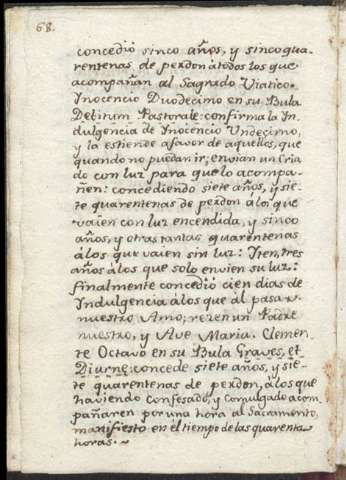 68.
concedió sinco años, y sincoqua-
rentenas de perdon átodos los que
acompañan al Sagrado Viatico.
Inocencio Duodecimo en su Bula
Debitum Pastorale: confirma la In-
dulgencia de Inocencio Undecimo,
y la estiende afavor de aquellos, que
quando no puedan ir; envian un Cria
do con luz para que lo acompa-
ñen: concediendo siete años, y sie-
te quarentenas de perdon álos que
vaien con luz encendida, y sinco
años, y otras tantas quarentenas
álos que vaien sin luz: Iten, tres
años álos que solo envien su luz:
finalmente concedió cien dias de
Indulgencia álos que al pasar
nuestro Amo, rezen un Padre
nuestro, y Ave Maria. Clemen-
te Octavo en su Bula Graves, et
Diurne: concede siete años, y sie-
te quarentenas de perdon, álos que
haviendo confesado, y comulgado acom
pañaren por una hora al Sacramento,
manifiesto en el tiempo de las quarenta
horas.